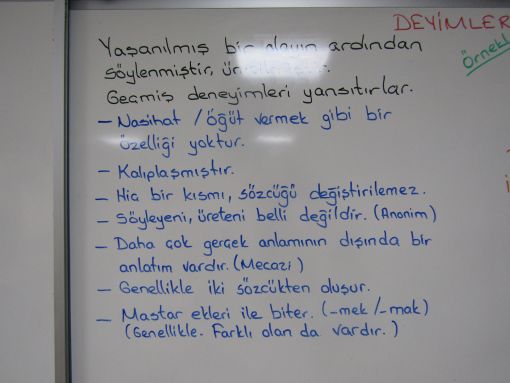 DEYİMLER
Örnekl
Yaşanılmış bir olayın ardından
söylenmiştir,
Geçmiş deneyimleri yansıtırlar.
- Nasihat / öğüt vermek gibi bir
özelliği yoktur.
- Kalıplaşmıştır.
- Hiç bir kısmı, sözcüğü değiştirilemez.
- Söyleyeni, üreteni belli değildir. (Anonim)
- Daha çok gerçek anlamının dışında bir
anlatım vardır. (Mecazi)
- Genellikle iki sözcükten oluşur.
- Mastar ekleri ile biter. (-mek / -mak)
(Genellikle. Farklı olan da vardır.)